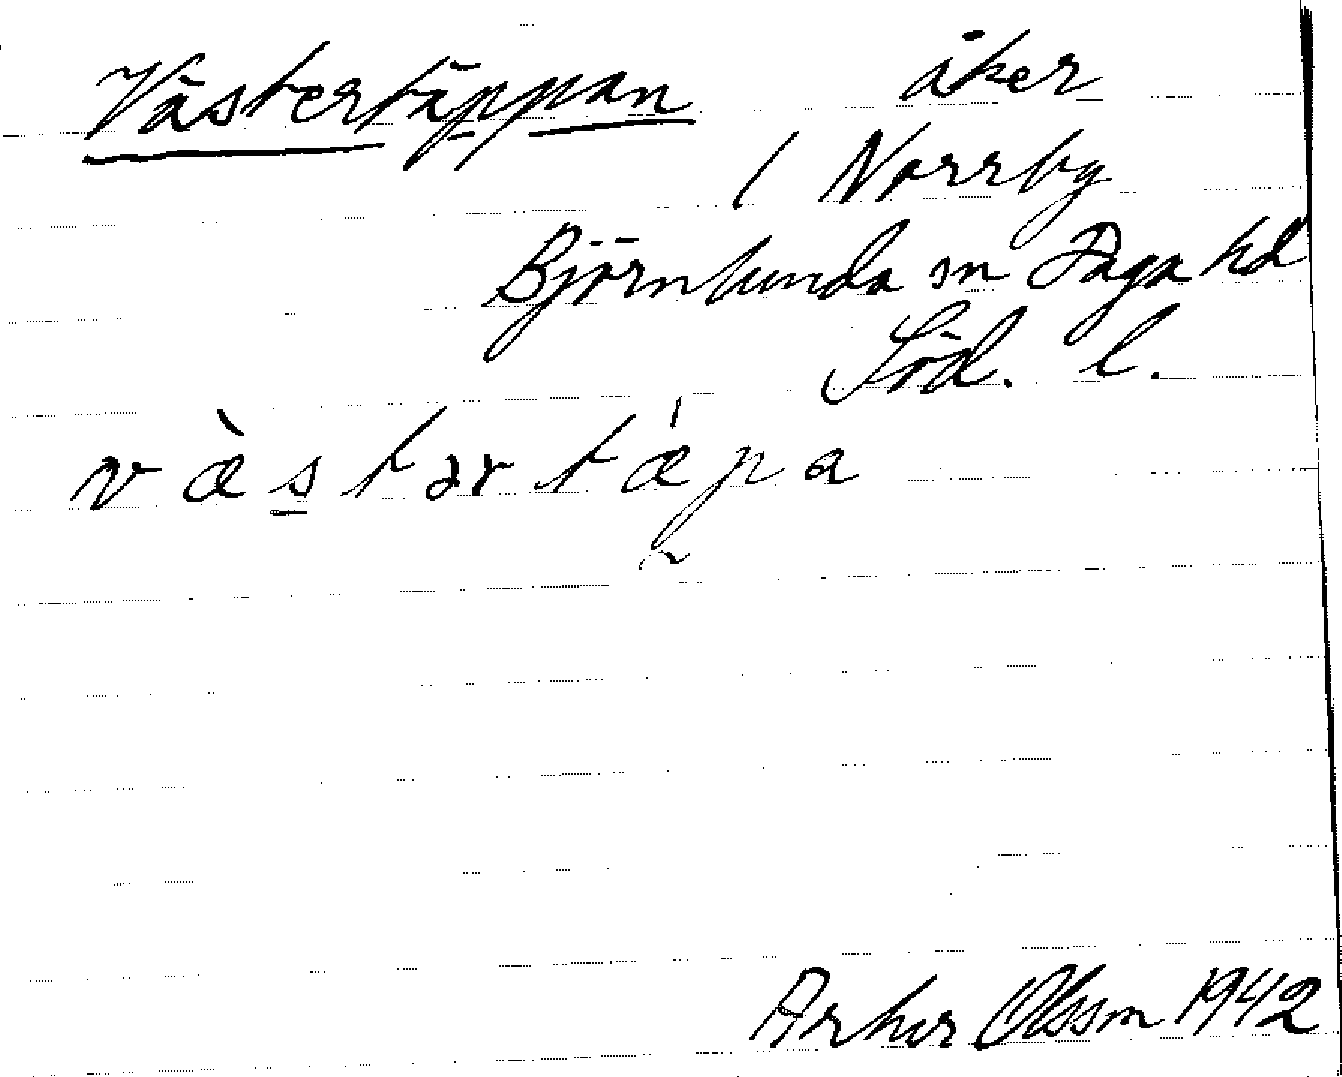 Västertäppan åker
/ Norrby
Björnlunda sn Daga hd
Söd. l.
v æ̀ s t ər t ǽ p a
Arthur Olsson 1942